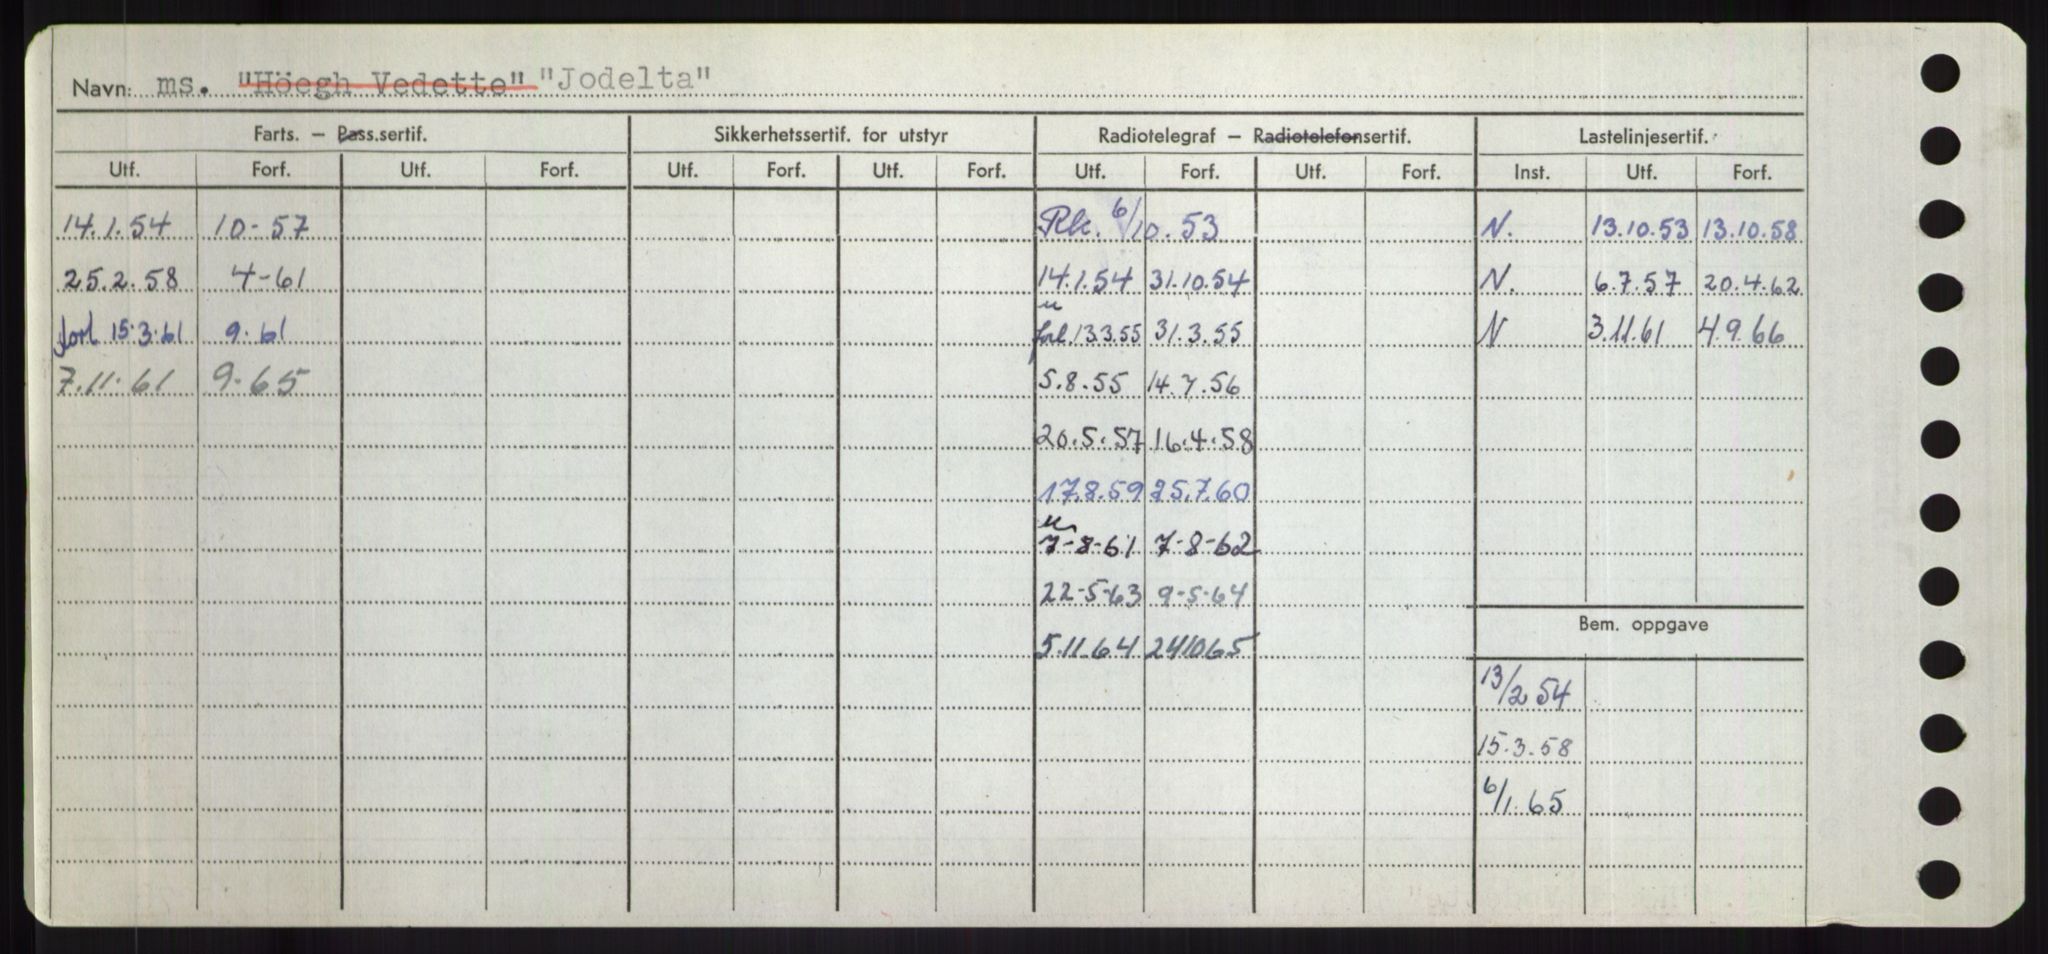 Navn: ms. "Höegh Vedette" "Jodelta"
Farts. — Pass.sertif. Sikkerhetssertif. for utstyr Radiotelegraf — Radiotelefonsertif. Lastelinjesertif.
Utf. Forf. Utf. Forf. Utf. Forf. Utf. Forf. Utf. Forf. Utf. Forf. Inst. Utf. Forf.
14.1.54 10-57 6/10.53 N. 13.10.53 13.10.58
25.2.58 4-61 14.1.54 31.10.54 N. 6.7.57 20.4.62
forl 15.3.61 9.61 forl. 13.3.55 31.3.55 N 3.11.61 4.9.66
7.11.61 9.65 5.8.55 14.7.56
20.5.57 16.4.58
17.8.59 25.7.60
7-8-61 7-8-62
22-5-63 9-5-64
Bem. oppgave
5.11.64 241065
13/2 54
15.3.58
6/1.65